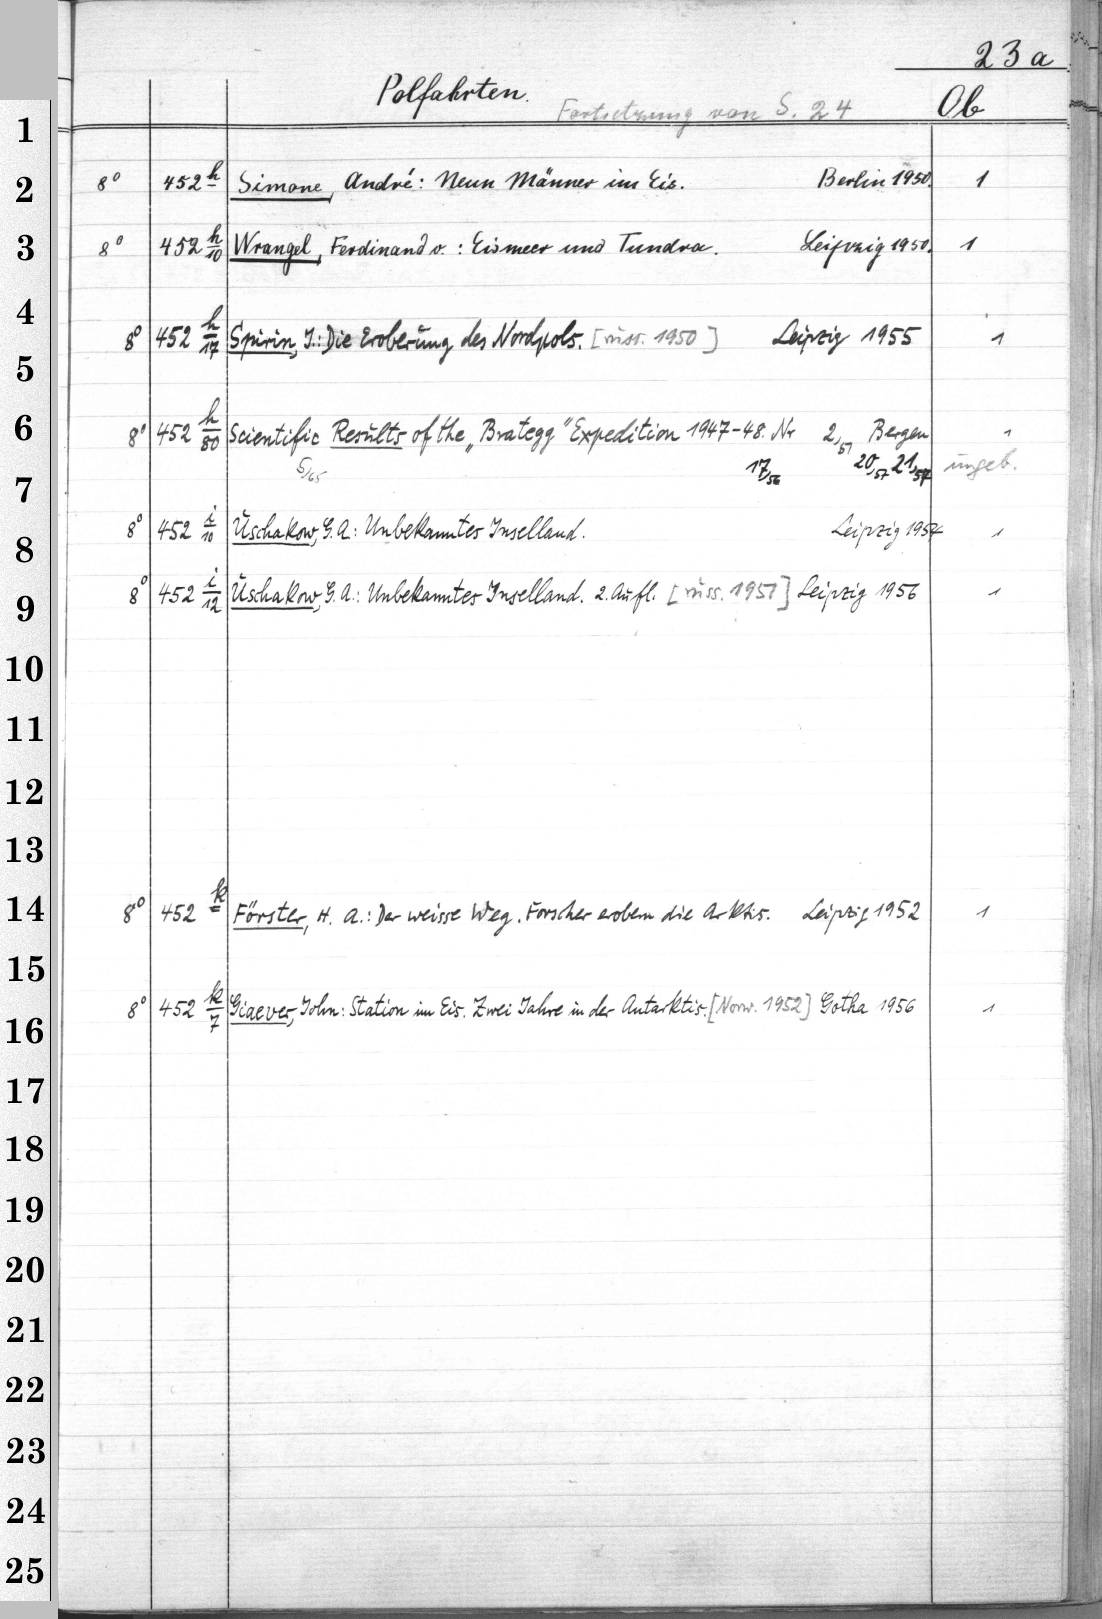 23 a
Polfahrten.
Fortsetzung von S. 24
Ob
1
2
8° 452 h Simone, André: Neun Männer im Eis. Berlin 1950. 1
3
8° 452 h/10 Wrangel, Ferdinand v.: Eismeer und Tundra. Leipzig 1950. 1
4
8° 452 h/17 Spirin, J.: Die Eroberung des Nordpols. [russ. 1950] Leipzig 1955 1
5
6
8° 452 h/80 Scientific Results of the „Brategg" Expedition 1947-48. Nr 2,51 Bergen 1
5/65 17,56 20,57 21,57 ungeb.
7
8° 452 i/10 Uschakow, G. A.: Unbekanntes Inselland. Leipzig 1954 1
8
8° 452 i/12 Uschakow, G. A.: Unbekanntes Inselland. 2. Aufl. [russ. 1951] Leipzig 1956 1
9
10
11
12
13
14
8° 452 k Förster, H. A.: Der weisse Weg. Forscher erobern die Arktis. Leipzig 1952 1
15
8° 452 k/7 Giaever, John: Station im Eis. Zwei Jahre in der Antarktis. [Norw. 1952] Gotha 1956 1
16
17
18
19
20
21
22
23
24
25